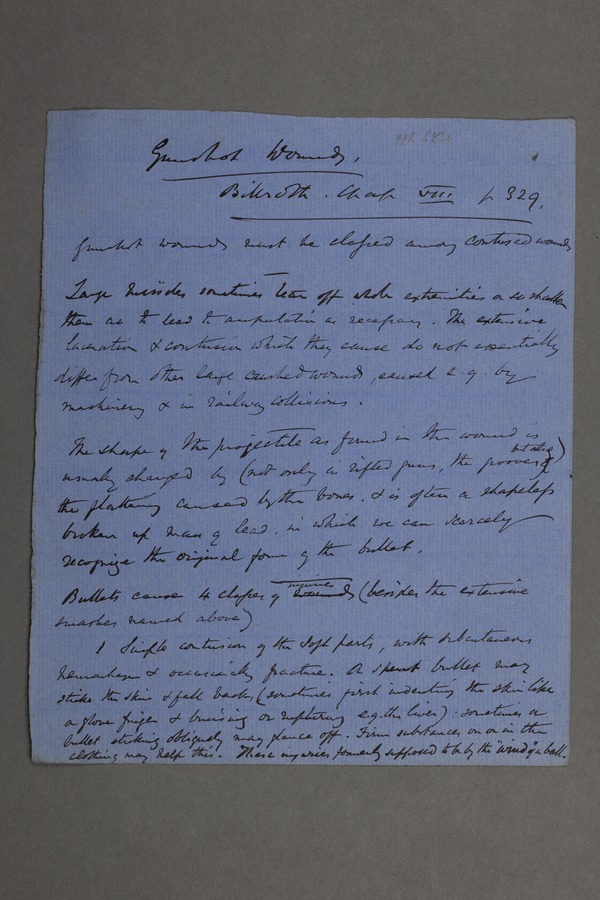 Gunshot Wounds.
Billroth. Chap VIII. p 329.
Gunshot wounds must be classed among contused wounds
Large missiles sometimes tear off whole extremities or so shatter
them as to lead to amputation as necessary. The extensive
laceration & contusion which they cause do not essentially
differ from other large crushed wounds, caused e.g. by
machinery & in railway collisions.
The shape of the projectile as found in the wound is
usually changed by (not only in rifled guns, the grooves) but also
the flattening caused by the bones. & is often a shapeless
broken up mass of lead, in which we can scarcely
recognize the original form of the bullet.
Bullets cause 4 classes of injuries (besides the extensive
smashes named above)
1 Simple contusion of the soft parts, with subcutaneous
hemorrhage & occasionally fracture. A spent bullet may
strike the skin & fall back, (sometimes first indenting the skin like
a glove finger & bruising or rupturing e.g. the liver): sometimes a
bullet striking obliquely may glance off. Firm substances on or in the
clothing may help this. These injuries formerly supposed to be by the "wind" of a ball.